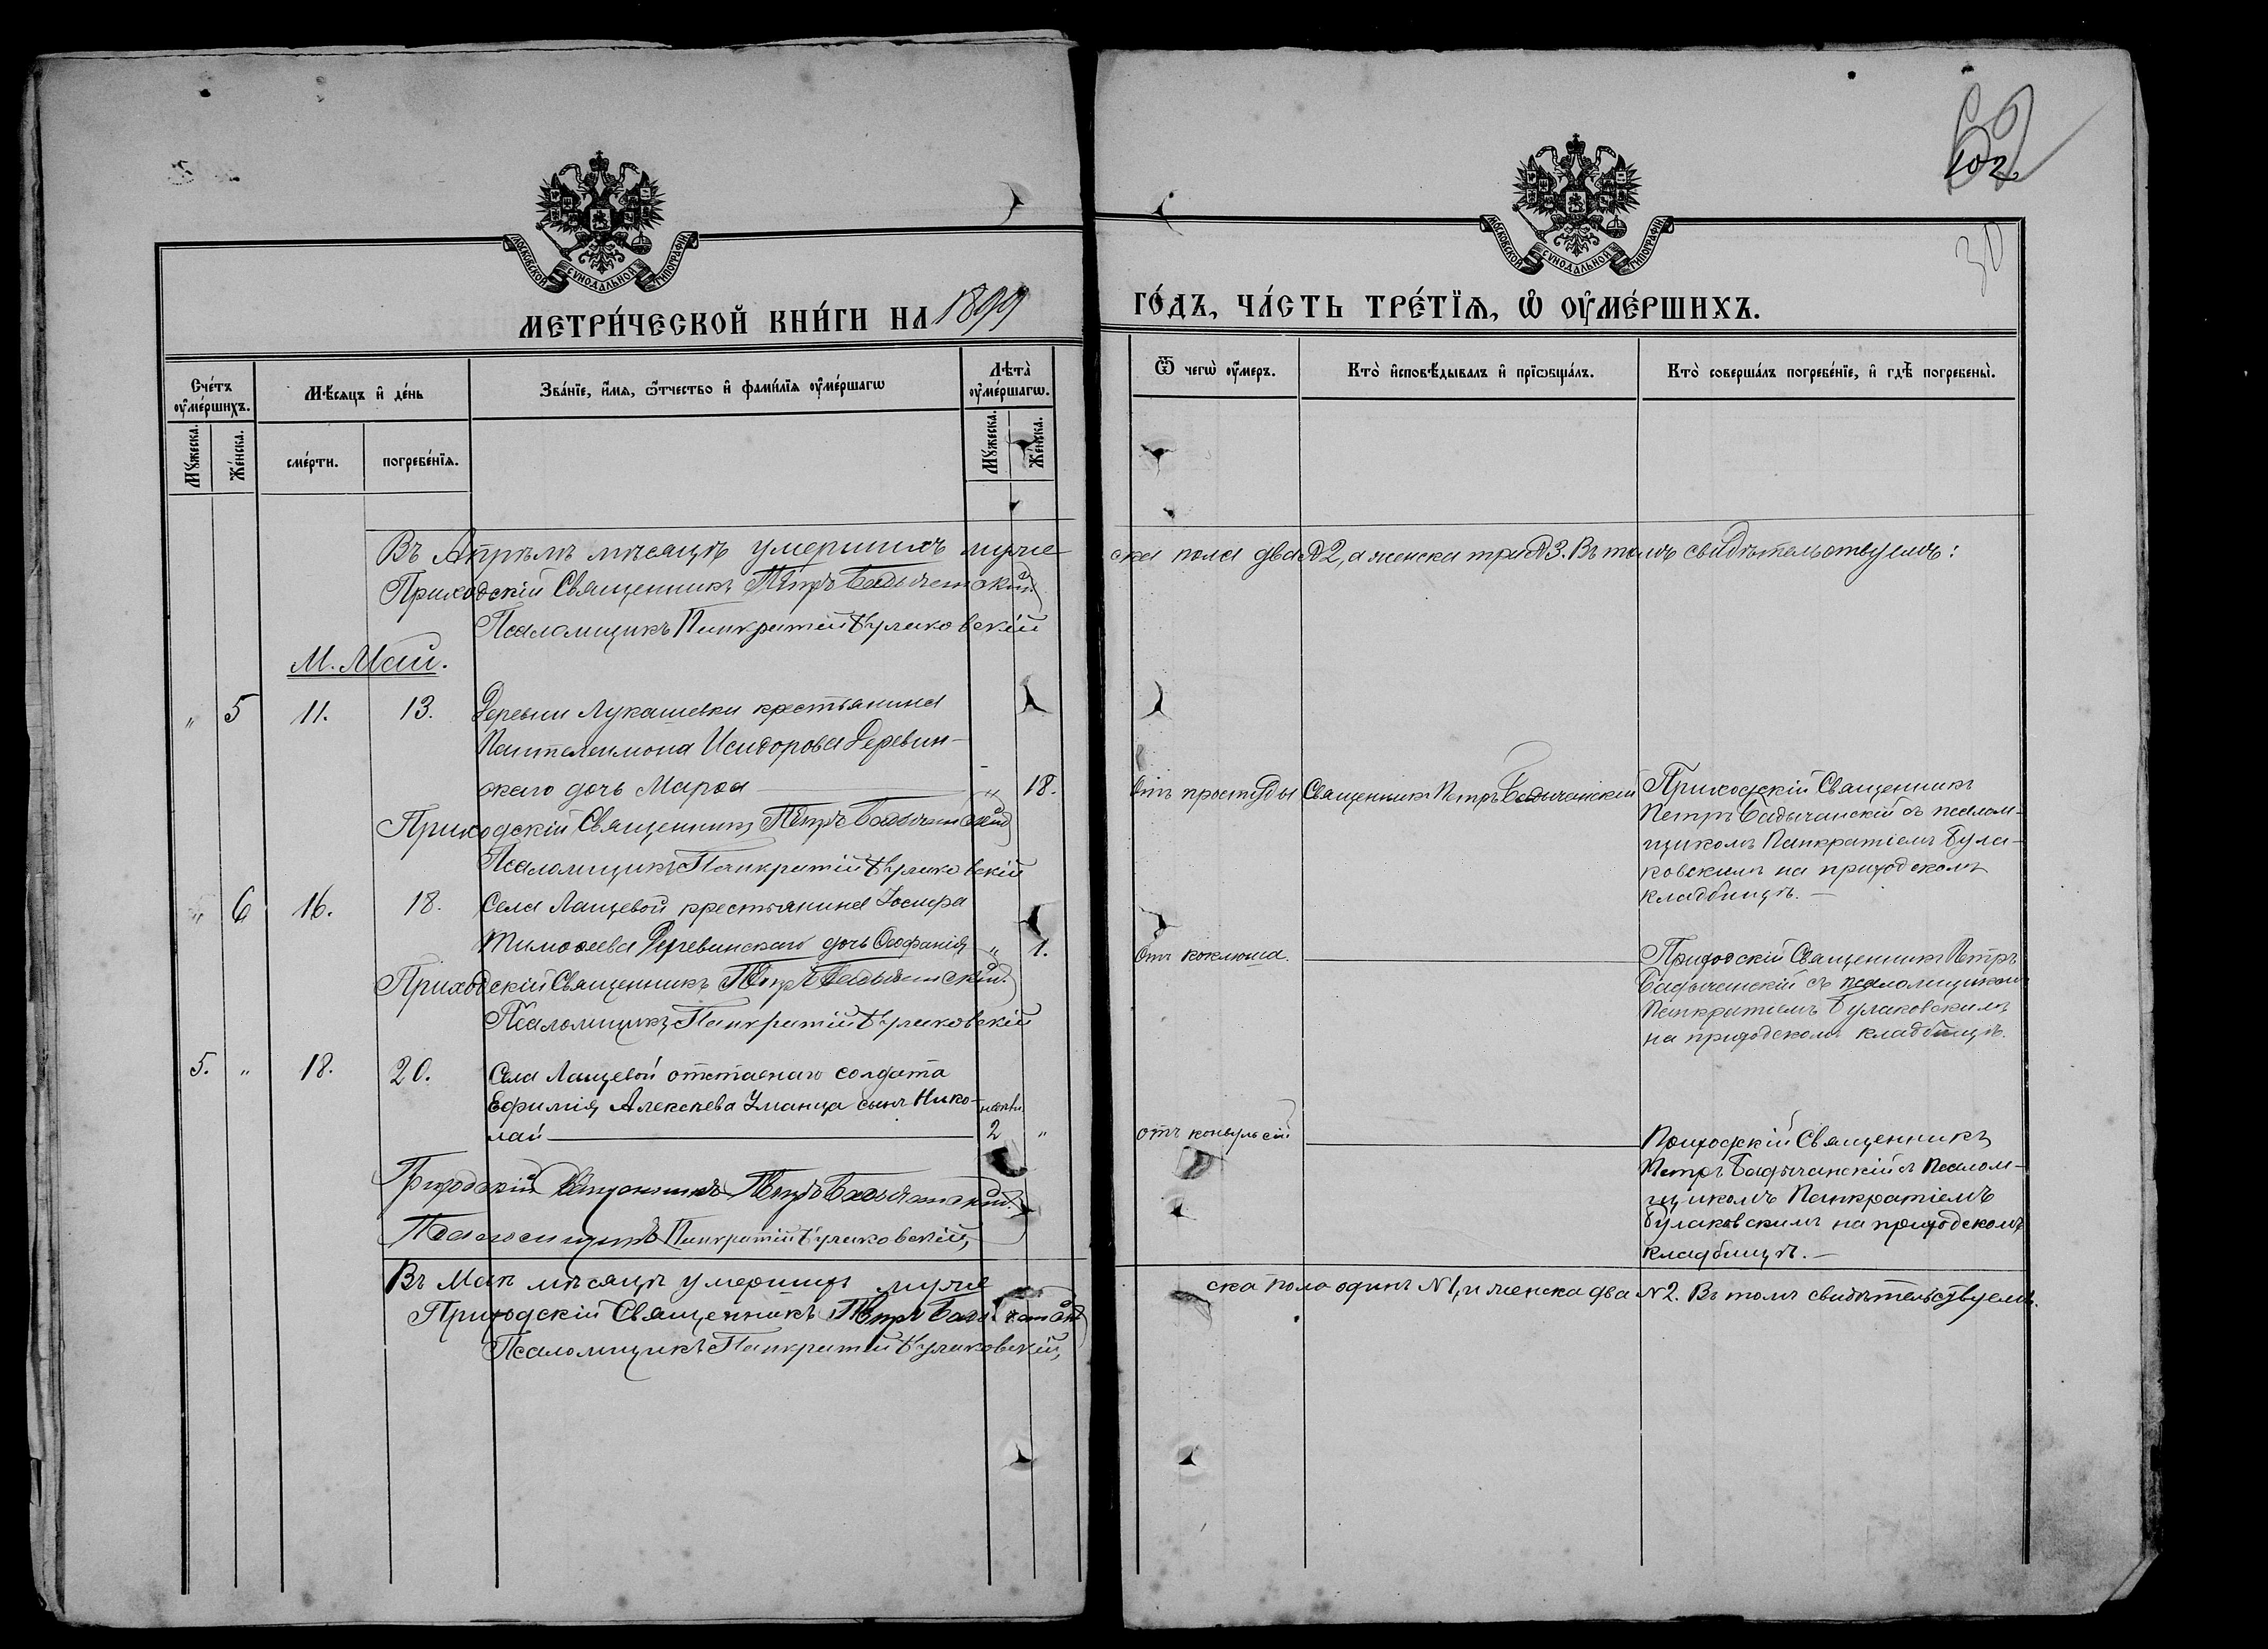 102
30
МОСКОВСКОЙ СѴНОДАЛЬНОЙ ТИПОГРАФІИ.
МОСКОВСКОЙ СѴНОДАЛЬНОЙ ТИПОГРАФІИ.
МЕТРИ́ЧЕСКОЙ КНИ́ГИ НА 1899
ГО́ДЪ, ЧА́СТЬ ТРЕ́ТЇѦ, Ѡ҆ ОУ҆МЕ́РШИХЪ.
Сче́тъ оу҆ме́ршихъ.
Мѣ́сяцъ и҆ де́нь
Зва́нїе, и҆́мѧ, ѻ҆́тчество и҆ фами́лїѧ оу҆ме́ршагѡ
Лѣта̀ оу҆ме́ршагѡ.
Ѿ чегѡ̀ оу҆́меръ.
Кто̀ и҆сповѣ́дывалъ и҆ прїѡбща́лъ.
Кто̀ соверша́лъ погребе́нїе, и҆ гдѣ̀ погребены̀.
Мꙋ́жеска.
Же́нска.
сме́рти.
погребе́нїѧ.
Мꙋ́жеска.
Же́нска.
Въ Апрѣлѣ мѣсяцѣ умершихъ муже-
ска пола два №2, а женска три №3. Въ томъ свидѣтельствуемъ:
Приходскій Священникъ Петръ Бадычанскій
Псаломщикъ Панкратій Булаковскій
М. Май.
" 5 11. 13. Деревни Лукашевки крестьянина
Пантелеимона Исидорова Деревин-
скаго дочь Марѳа " 18.
Отъ простуды Священникъ Петръ Бадычанскій Приходскій Священникъ
Петръ Бадычанскій съ псалом-
щикомъ Панкратіемъ Була-
ковскимъ на приходскомъ
кладбищѣ.
Приходскій Священникъ Петръ Бадычанскій
Псаломщикъ Панкратій Булаковскій
" 6 16. 18. Села Лащевой крестьянина Іосифа
Тимоѳеева Деревинскаго дочь Ѳеофанія " 1.
Отъ коклюша. Приходскій Священникъ Петръ
Бадычанскій съ псаломщикомъ
Панкратіемъ Булаковскимъ
на приходскомъ кладбищѣ.
Приходскій Священникъ Петръ Бадычанскій.
Псаломщикъ Панкратій Булаковскій
5. " 18. 20. Села Лащевой отставнаго солдата
Ефимія Алексѣева Уманца сынъ Нико-
лай 2 "
отъ конвульсій Приходскій Священникъ
Петръ Бадычанскій съ Псалом-
щикомъ Панкратіемъ
Булаковскимъ на приходскомъ
кладбищѣ.
Приходскій Священникъ Петръ Бадычанскій.
Псаломщикъ Панкратій Булаковскій
Въ Маѣ мѣсяцѣ умершихъ муже
ска пола одинъ №1, и женска два №2. Въ томъ свидѣтельствуемъ.
Приходскій Священникъ Петръ Бадычанскій
Псаломщикъ Панкратій Булаковскій